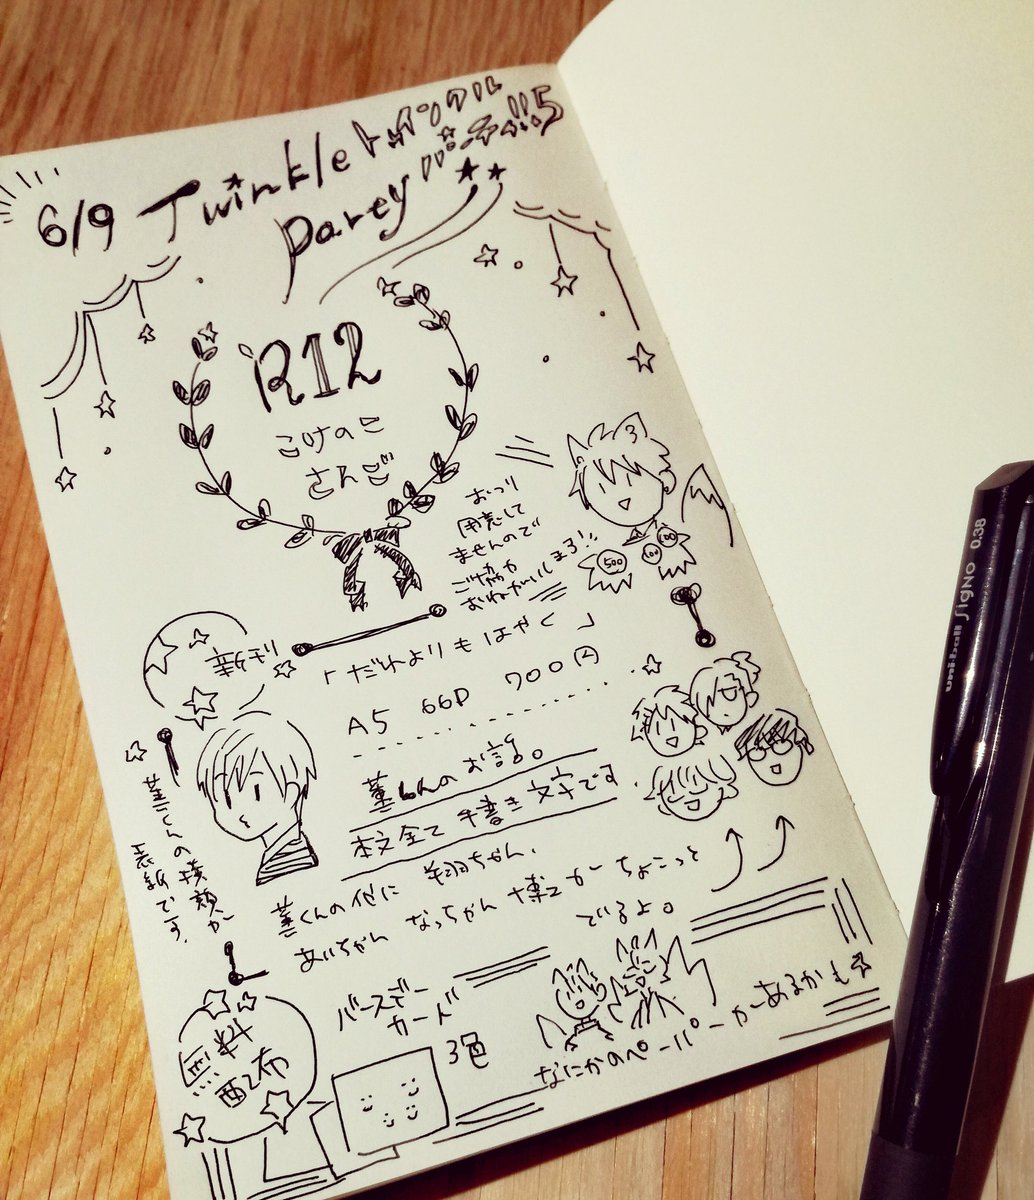 6/9 Twinkle トゥインクル
Party パーティー!!5
R12
こけのこ
さんご
おつり
用意して
ませんので
ご協力
おねがいします!!
500
100
新刊
「だれよりもはやく」
A5 66P 700円
薫くんのお話。
本文全て手書き文字です
薫くんの横顔が
表紙です。
薫くんの他に 翔ちゃん、
あいちゃん なっちゃん 博士が ちょこっと
でるよ。
無料
配布
バースデー
カード
3色
なにかのペーパーがあるかも
uni-ball SigNo 0.38